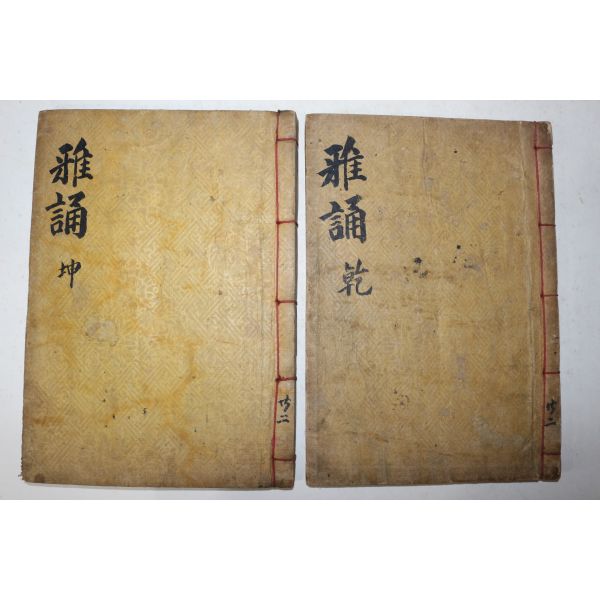 雅誦
乾
共二
雅誦
坤
共二